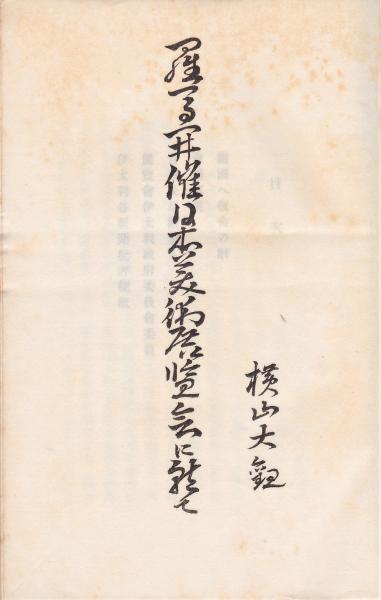 羅馬開催日本美術展覧会に就て
横山大観